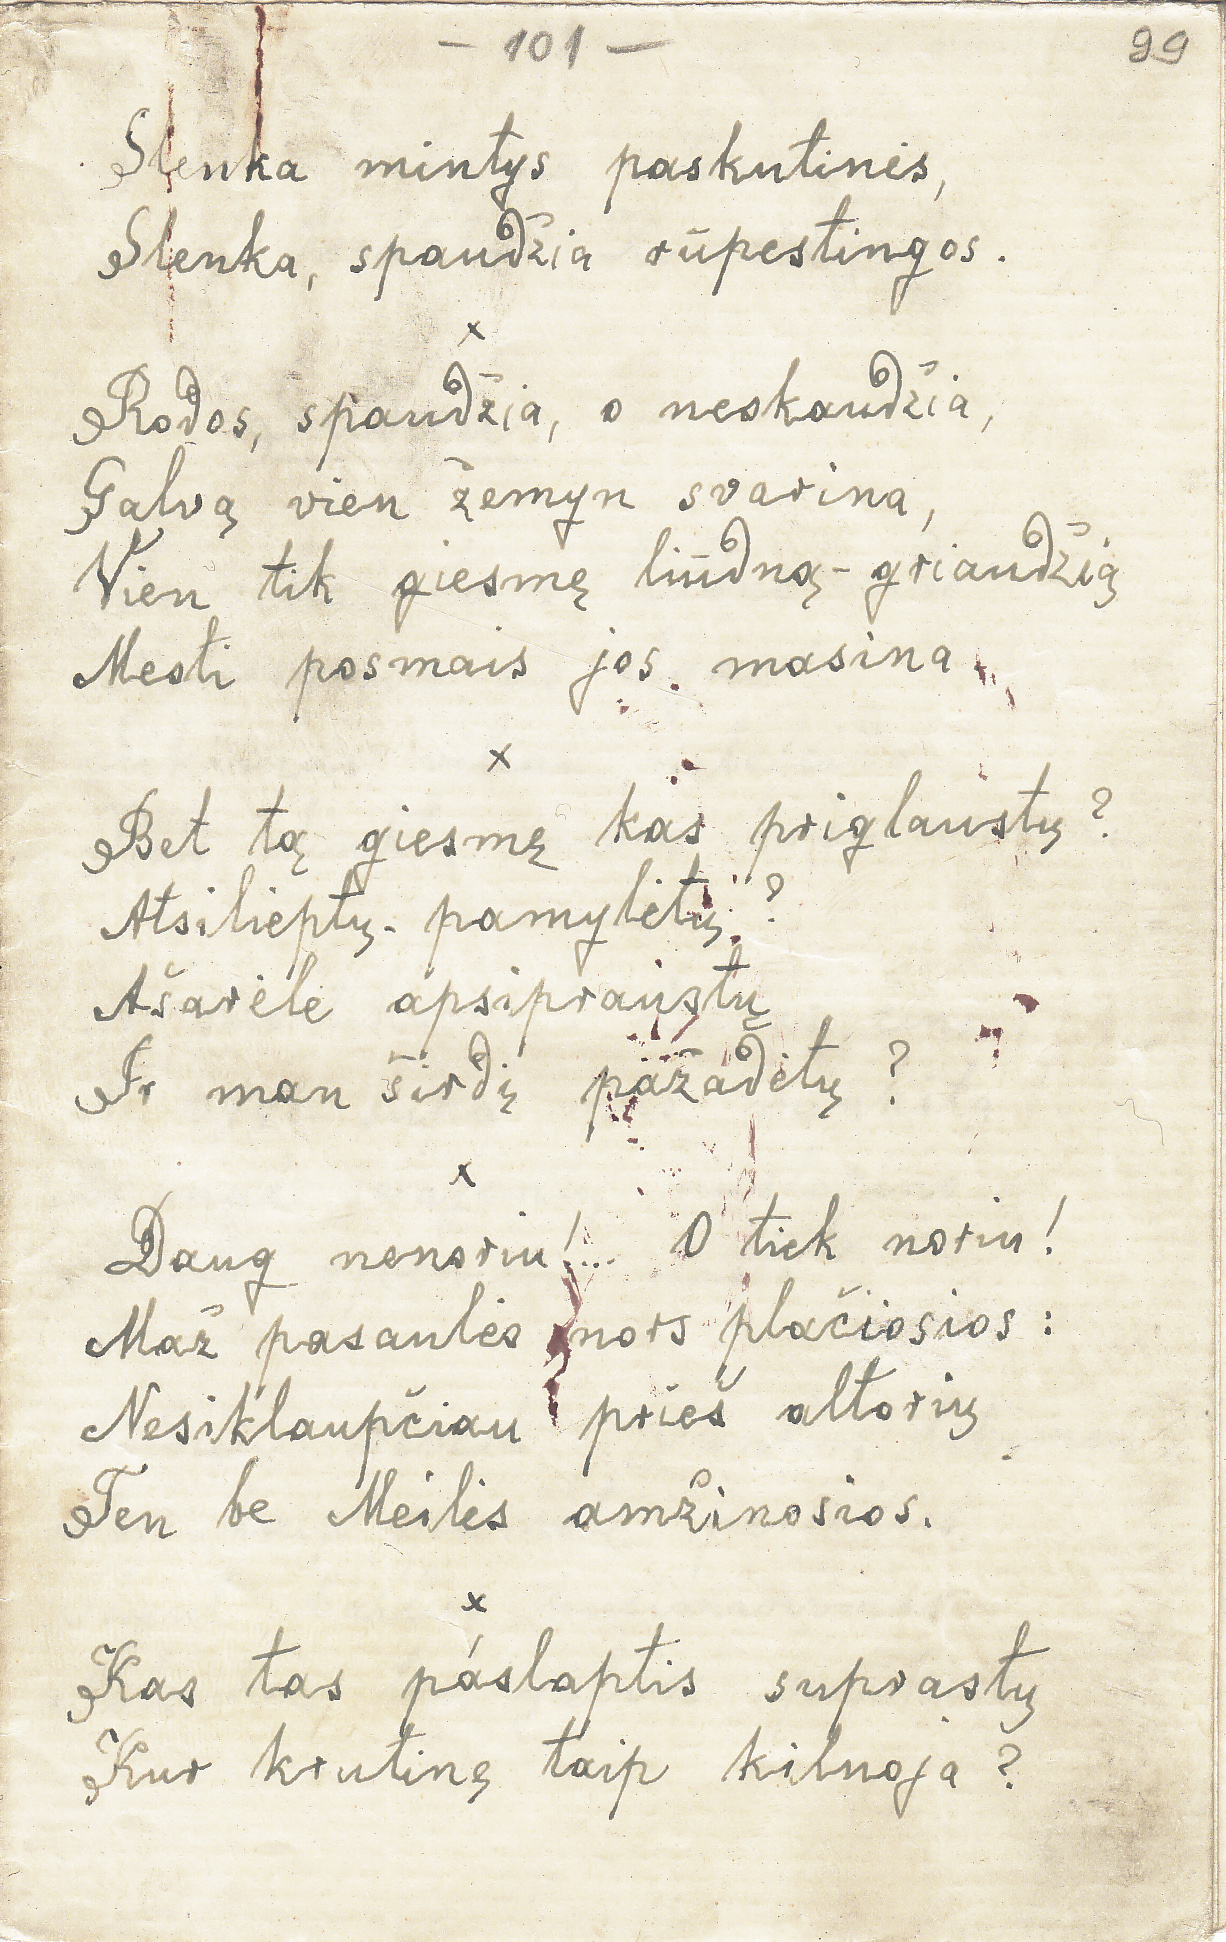 - 101 -
99
Slenka mintys paskutinės,
Slenka, spaudžia rūpestingos.
x
Rodos, spaudžia, o neskaudžia,
Galvą vien žemyn svarina,
Vien tik giesmę liūdną-griaudžią
Mesti posmais jos masina
x
Bet tą giesmę kas priglaustų?
Atsilieptų - pamylėtų?
Ašarėle apsipraustų
Ir man širdį pažadėtų?
x
Daug nenoriu!... O tiek noriu!
Maž pasaulės nors plačiosios:
Nesiklaupčiau prieš altorių
Ten be Meilės amžinosios.
x
Kas tas páslaptis suprastų
Kur krutinę taip kilnoja?